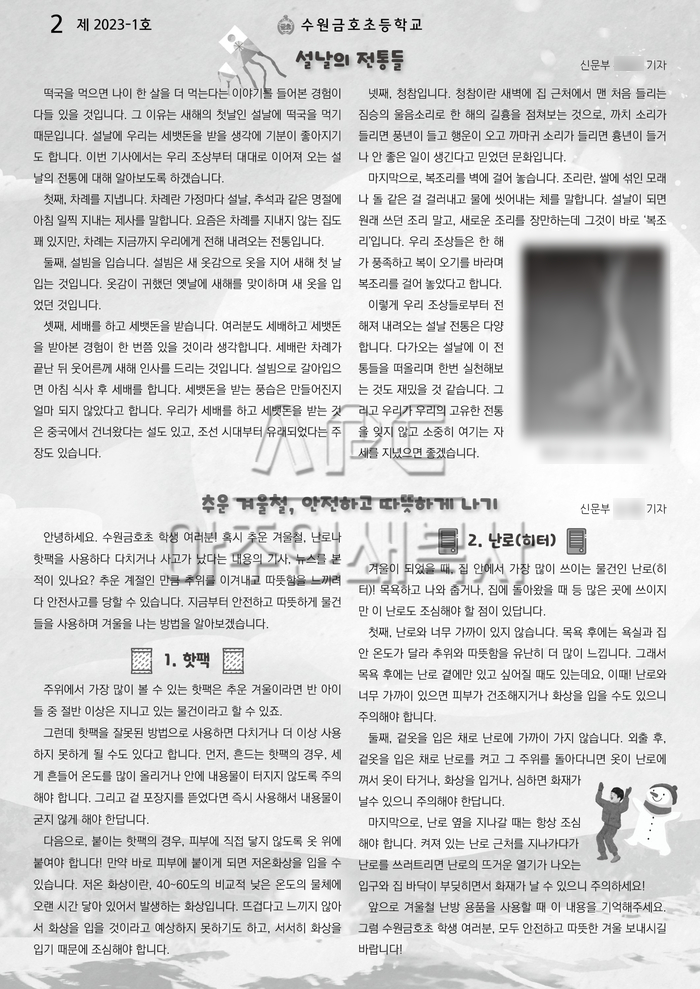 2 제 2023-1호
수원금호초등학교
설날의 전통들
신문부 기자
떡국을 먹으면 나이 한 살을 더 먹는다는 이야기를 들어본 경험이
다들 있을 것입니다. 그 이유는 새해의 첫날인 설날에 떡국을 먹기
때문입니다. 설날에 우리는 세뱃돈을 받을 생각에 기분이 좋아지기
도 합니다. 이번 기사에서는 우리 조상부터 대대로 이어져 오는 설
날의 전통에 대해 알아보도록 하겠습니다.
첫째, 차례를 지냅니다. 차례란 가정마다 설날, 추석과 같은 명절에
아침 일찍 지내는 제사를 말합니다. 요즘은 차례를 지내지 않는 집도
꽤 있지만, 차례는 지금까지 우리에게 전해 내려오는 전통입니다.
둘째, 설빔을 입습니다. 설빔은 새 옷감으로 옷을 지어 새해 첫 날
입는 것입니다. 옷감이 귀했던 옛날에 새해를 맞이하며 새 옷을 입
었던 것입니다.
셋째, 세배를 하고 세뱃돈을 받습니다. 여러분도 세배하고 세뱃돈
을 받아본 경험이 한 번쯤 있을 것이라 생각합니다. 세배란 차례가
끝난 뒤 웃어른께 새해 인사를 드리는 것입니다. 설빔으로 갈아입으
면 아침 식사 후 세배를 합니다. 세뱃돈을 받는 풍습은 만들어진지
얼마 되지 않았다고 합니다. 우리가 세배를 하고 세뱃돈을 받는 것
은 중국에서 건너왔다는 설도 있고, 조선 시대부터 유래되었다는 주
장도 있습니다.
넷째, 청참입니다. 청참이란 새벽에 집 근처에서 맨 처음 들리는
짐승의 울음소리로 한 해의 길흉을 점쳐보는 것으로, 까치 소리가
들리면 풍년이 들고 행운이 오고 까마귀 소리가 들리면 흉년이 들거
나 안 좋은 일이 생긴다고 믿었던 문화입니다.
마지막으로, 복조리를 벽에 걸어 놓습니다. 조리란, 쌀에 섞인 모래
나 돌 같은 걸 걸러내고 물에 씻어내는 체를 말합니다. 설날이 되면
원래 쓰던 조리 말고, 새로운 조리를 장만하는데 그것이 바로 '복조
리'입니다. 우리 조상들은 한 해
가 풍족하고 복이 오기를 바라며
복조리를 걸어 놓았다고 합니다.
이렇게 우리 조상들로부터 전
해져 내려오는 설날 전통은 다양
합니다. 다가오는 설날에 이 전
통들을 떠올리며 한번 실천해보
는 것도 재밌을 것 같습니다. 그
리고 우리가 우리의 고유한 전통
을 잊지 않고 소중히 여기는 자
세를 지녔으면 좋겠습니다.
APC
아주인쇄복사
추운 겨울철, 안전하고 따뜻하게 나기
신문부 기자
안녕하세요. 수원금호초 학생 여러분! 혹시 추운 겨울철, 난로나
핫팩을 사용하다 다치거나 사고가 났다는 내용의 기사, 뉴스를 본
적이 있나요? 추운 계절인 만큼 추위를 이겨내고 따뜻함을 느끼려
다 안전사고를 당할 수 있습니다. 지금부터 안전하고 따뜻하게 물건
들을 사용하며 겨울을 나는 방법을 알아보겠습니다.
1. 핫팩
주위에서 가장 많이 볼 수 있는 핫팩은 추운 겨울이라면 반 아이
들 중 절반 이상은 지니고 있는 물건이라고 할 수 있죠.
그런데 핫팩을 잘못된 방법으로 사용하면 다치거나 더 이상 사용
하지 못하게 될 수도 있다고 합니다. 먼저, 흔드는 핫팩의 경우, 세
게 흔들어 온도를 많이 올리거나 안에 내용물이 터지지 않도록 주의
해야 합니다. 그리고 겉 포장지를 뜯었다면 즉시 사용해서 내용물이
굳지 않게 해야 한답니다.
다음으로, 붙이는 핫팩의 경우, 피부에 직접 닿지 않도록 옷 위에
붙여야 합니다! 만약 바로 피부에 붙이게 되면 저온화상을 입을 수
있습니다. 저온 화상이란, 40~60도의 비교적 낮은 온도의 물체에
오랜 시간 닿아 있어서 발생하는 화상입니다. 뜨겁다고 느끼지 않아
서 화상을 입을 것이라고 예상하지 못하기도 하고, 서서히 화상을
입기 때문에 조심해야 합니다.
2. 난로(히터)
겨울이 되었을 때, 집 안에서 가장 많이 쓰이는 물건인 난로(히
터)! 목욕하고 나와 춥거나, 집에 돌아왔을 때 등 많은 곳에 쓰이지
만 이 난로도 조심해야 할 점이 있답니다.
첫째, 난로와 너무 가까이 있지 않습니다. 목욕 후에는 욕실과 집
안 온도가 달라 추위와 따뜻함을 유난히 더 많이 느낍니다. 그래서
목욕 후에는 난로 곁에만 있고 싶어질 때도 있는데요, 이때! 난로와
너무 가까이 있으면 피부가 건조해지거나 화상을 입을 수도 있으니
주의해야 합니다.
둘째, 겉옷을 입은 채로 난로에 가까이 가지 않습니다. 외출 후,
겉옷을 입은 채로 난로를 켜고 그 주위를 돌아다니면 옷이 난로에
껴서 옷이 타거나, 화상을 입거나, 심하면 화재가
날수 있으니 주의해야 한답니다.
마지막으로, 난로 옆을 지나갈 때는 항상 조심
해야 합니다. 켜져 있는 난로 근처를 지나가다가
난로를 쓰러트리면 난로의 뜨거운 열기가 나오는
입구와 집 바닥이 부딪히면서 화재가 날 수 있으니 주의하세요!
앞으로 겨울철 난방 용품을 사용할 때 이 내용을 기억해주세요.
그럼 수원금호초 학생 여러분, 모두 안전하고 따뜻한 겨울 보내시길
바랍니다!